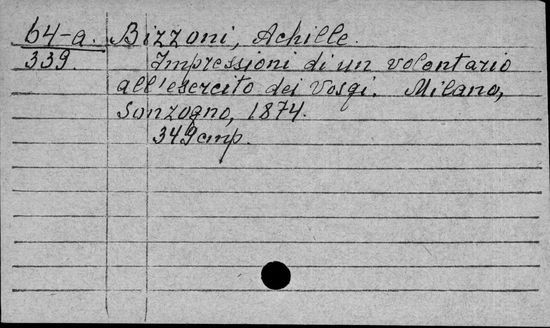 64-a. Bizzoni, Achille.
339. Impressioni di un volontario
all'esercito dei Vosgi. Milano,
Sonzogno, 1874.
349 cmp.